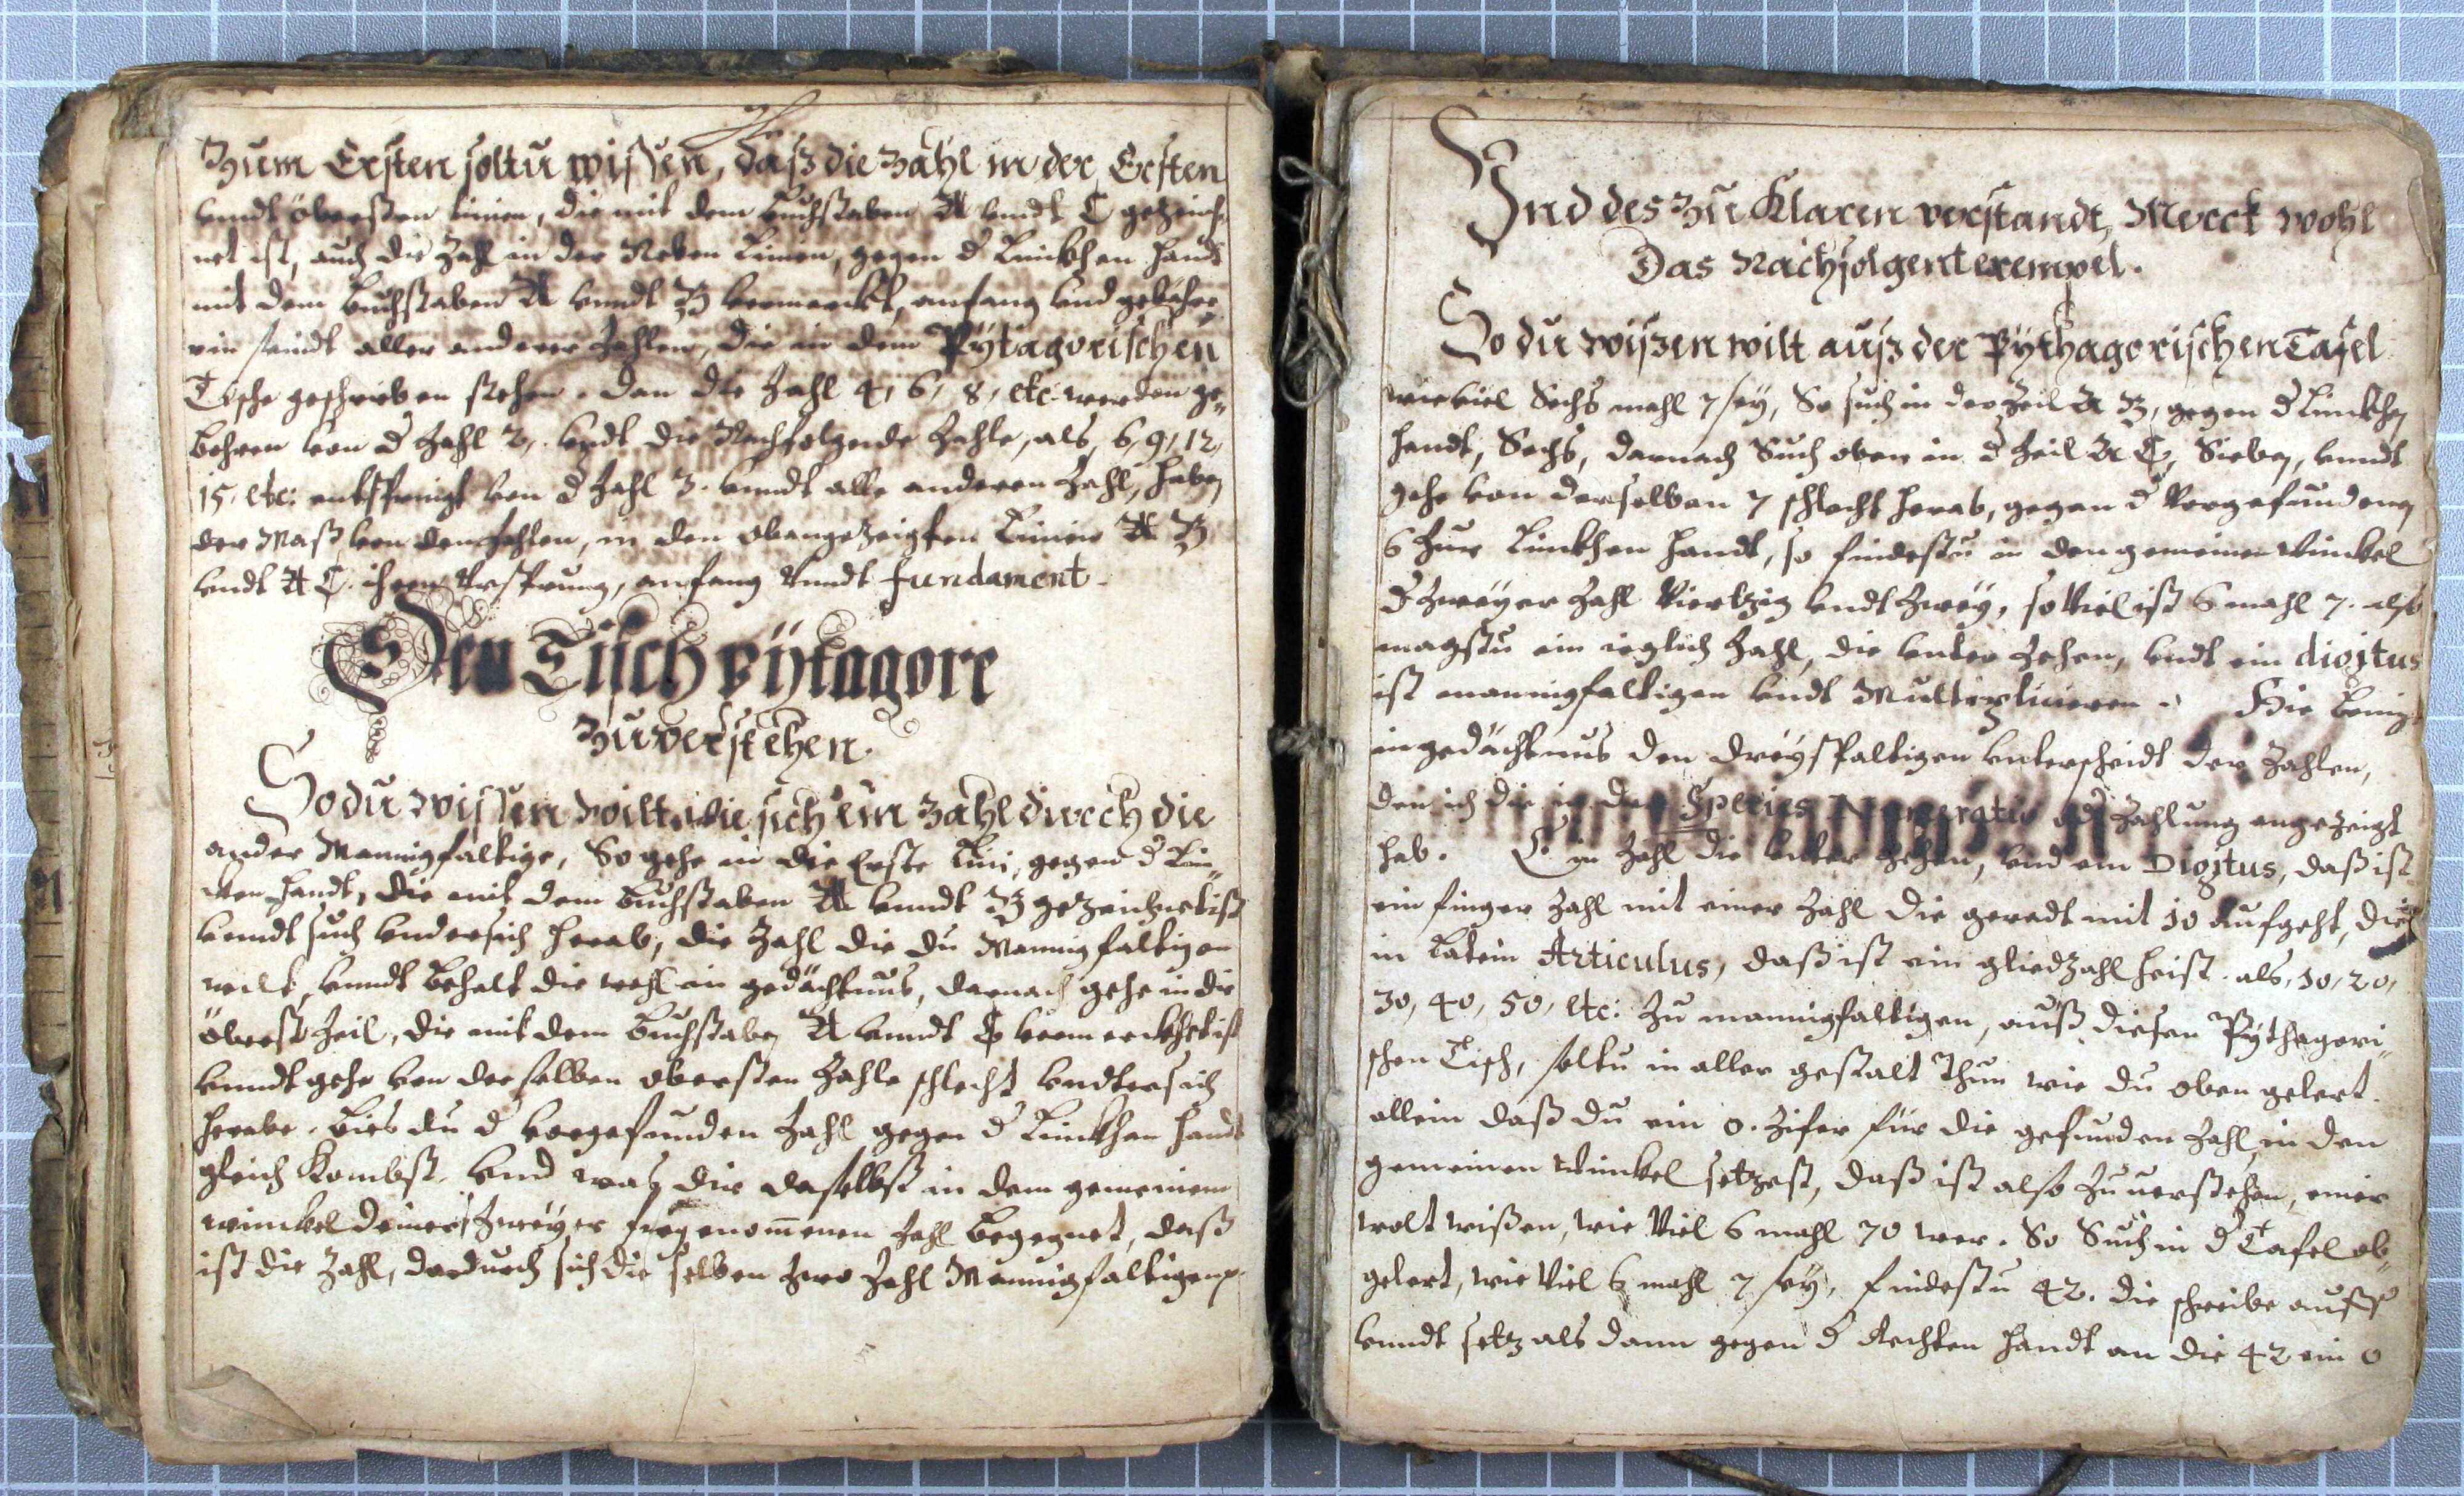 Zum Ersten soltu wissen, daß die Zahl in der Ersten
vnndt öbersten linien, die mit dem buchstaben A vnndt C gezeich
net ist, auch die Zahl in der Neben Linien, gegen d Linckhen handt
mit dem buchstaben A vnndt B vermerckt, anfang vnd gebehre
rin seindt aller anderer Zahlen, die in dem Pÿtagorischen
Tische geschrieben stehen. dan die Zahl 4, 6, 8, etc werden ge„
bohren von d Zahl 2, vndt die Nachfolgende Zahle, als, 6, 9, 12,
15. etc: entspringt von d Zahl 3. vnndt alle anderen Zahl, haben
der Maß, von den Zahlen, in den obangezeigten Linien A B
vndt A C. ihren Vrsprung, anfang vnndt fundament.
Den Tisch pÿtagore
Zuverstehen.
So du wissen wilt, wie sich ein Zahl durch die
ander Mannigfaltige, So gehe in die Erste Lini, gegen d Lin„
cken handt, die mit dem buchstaben A vnndt B gezeichnet ist
vnndt such vndersich herab, die Zahl die du Mannigfaltigen
wilt, vnndt behalt die wohl in gedächtnuß, darnach gehe in die
öberst Zeil, die mit dem buchstaben A vnndt C vermerckht ist
vnndt gehe von derselben obersten Zahle schlecht vndtersich
herabe. bies du d vorgefunden Zahl gegen d Linckhen handt
gleich kombst. Vnd was dir daselbst in dem gemeinen
winckel deiner Zweÿer fürgenom̅enen Zahl begegnet, daß
ist die Zahl, dardurch sich die selben zwo Zahl Mannigfaltigen.
Vnd des Zu Klaren verstandt, Merck wohl
Das Nachfolgent exempel.
So du wißen wilt auß der Pÿthagorischen Tafel
wieviel Sechs mahl 7 seÿ, So such in der Zeil A B, gegen d Linckhen
handt, Sechs, darnach Such oben in d Zeil A C, Sieben, vnndt
gehe von derselben 7 schlecht herab, gegen d Vorgefundenen
6 Zur Linckhen handt, so findestu in den gemeinen winckel
d Zweÿer Zahl Viertzig vndt Zweÿ, so Viel ist 6 mahl 7. also
magstu ein ieglich Zahl, die vnter Zehen, vndt ein digitus
ist mannigfaltigen vndt Multipliciren. Hie bring
in gedächtnus den dreÿspaltigen vnterscheidt der Zahlen,
den ich dir in der Species Numeratio od Zahlung angezeigt
hab. Ein Zahl die vnter Zehen, vnd ein Digitus, daß ist
ein finger Zahl mit einer Zahl die geradt mit 10 aufgeht, die
in Latein Articulus, daß ist ein gliedzahl heist. als, 10, 20,
30, 40, 50, etc: zu mannigfaltigen, auß diesen Pÿthagori„
schen Tisch, soltu in aller gestalt Thun wie du oben gelert.
allein daß du ein 0. Zifer für die gefunden Zahl, in den
gemeinen winckel setzest, daß ist also zu uerstehen, einer
wolt wißen, wie Viel 6 mahl 70 wer. So Such in d Tafel ob„
gelert, wie Viel 6 mahl 7 seÿ, findestu 42. die schreibe auß
vnndt setz als dann gegen d Rechten handt an die 42 ein 0